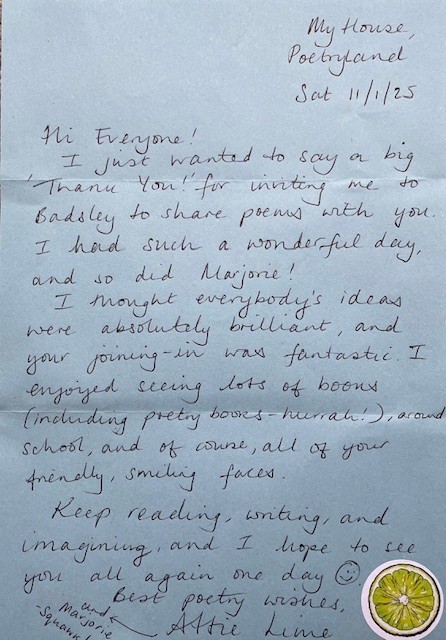 My House,
Poetryland
Sat 11/1/25
Hi Everyone!
I just wanted to say a big
'Thank You!' for inviting me to
Badsley to share poems with you.
I had such a wonderful day,
and so did Marjorie!
I thought everybody's ideas
were absolutely brilliant, and
your joining-in was fantastic. I
enjoyed seeing lots of books
(including poetry books - hurrah!), around
school, and of course, all of your
friendly, smiling faces.
Keep reading, writing, and
imagining, and I hope to see
you all again one day ☺
Best poetry wishes,
Attie Lime
and
Marjorie
-Squawk!